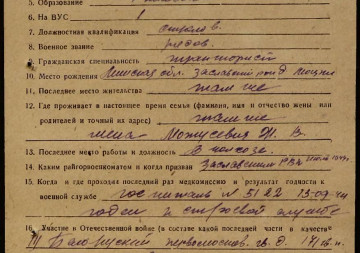 5. Образование
6. На ВУС 1
7. Должностная квалификация стрелк.
8. Военное звание рядов.
9. Гражданская специальность тракторист
10. Место рождения Минская обл. Заславский район
11. Последнее место жительства там же
12. Где проживает в настоящее время семья (фамилия, имя и отчество жены или
родителей и точный адрес) там же
жена В.
13. Последнее место работы и должность В колхозе.
14. Каким райгорвоенкоматом и когда призван Заславским РВК
15. Когда и где проходил последний раз медкомиссию и результат годности к
военной службе госпиталь № 5122 13.09.44
годен к строевой службе
16. Участие в Отечественной войне (в составе какой последней части и в качестве
Белорусский